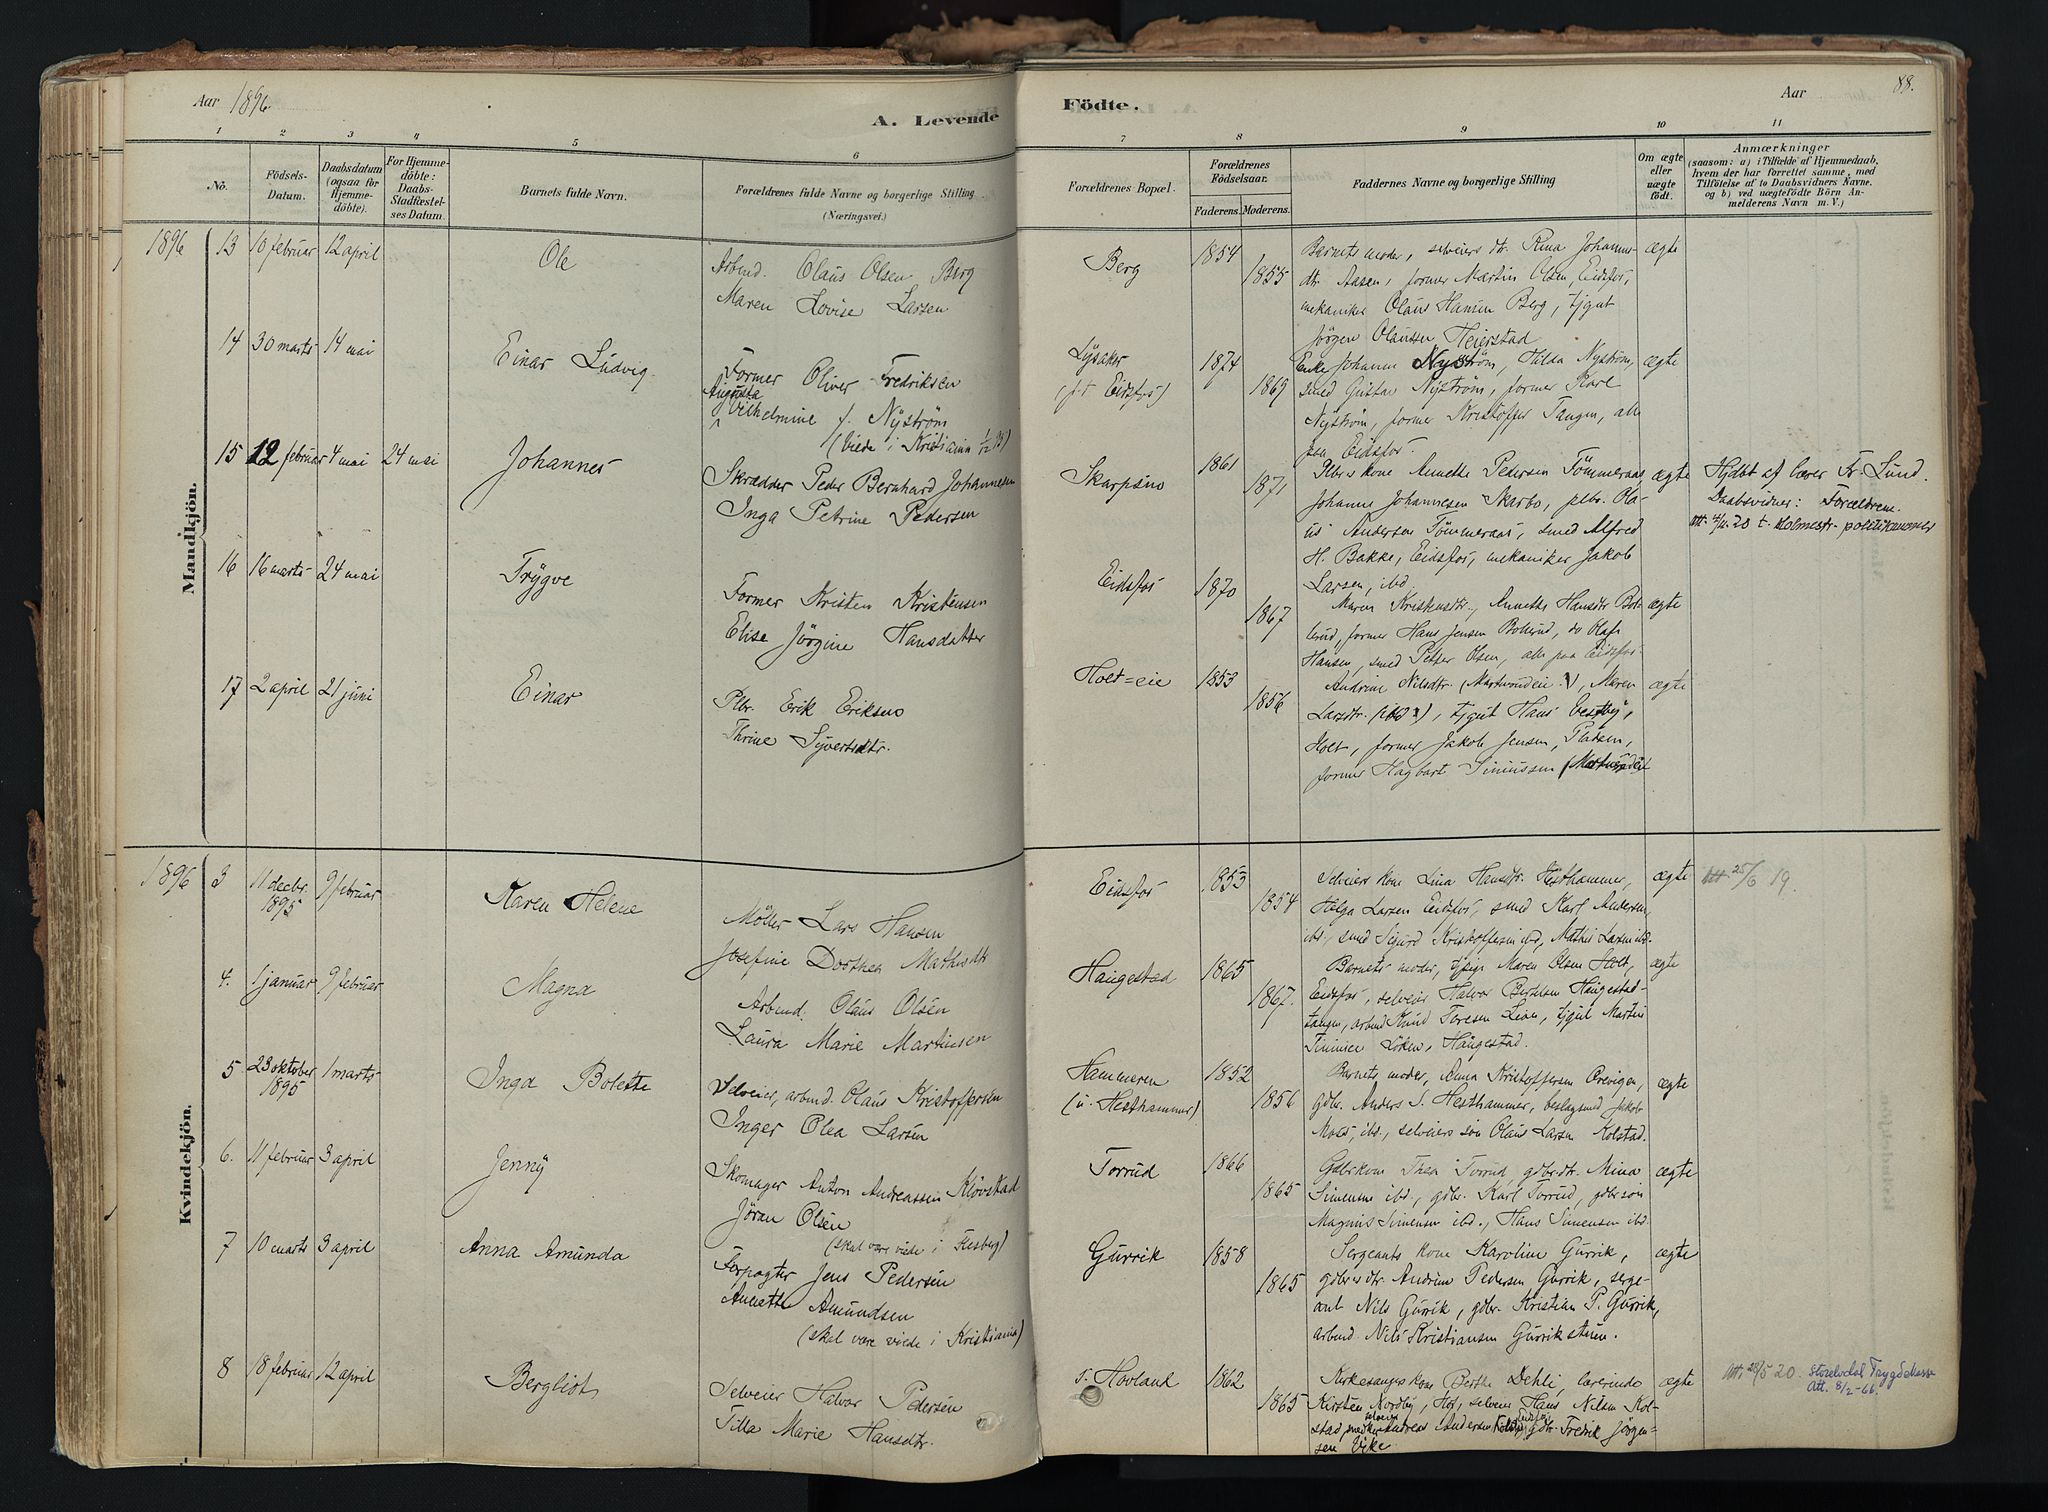 Aar 1896.
A. Levende
Födte.
Aar
88.
1 2 3 4 5 6 7 8 9 10 11
No.
Födsels-Datum.
Daabsdatum (ogsaa for Hjemmedöbte).
For Hjemmedöbte: Daabs-Stadfæstelses Datum.
Barnets fulde Navn.
Forældrenes fulde Navne og borgerlige Stilling
(Næringsvei.)
Forældrenes Bopæl.
Forældrenes Födselsaar.
Faderens. Moderens.
Faddernes Navne og borgerlige Stilling
Om ægte eller uægte födt.
Anmærkninger
(saasom: a) i Tilfælde af Hjemmedaab, hvem der har forrettet samme, med Tilföielse af to Daabsvidners Navne, og b) ved uægtefödte Börn Anmelderens Navn m. V.)
Mandkjön.
1896 13 10 februar 12 april Ole
Arbmd. Olaus Olsen Berg
Maren Lovise Larsen
Berg 1854 1855
Barnets moder, selveiers dtr. Rina Johanns-
dtr. Aasen, former Martin Olsen, Eidsfos,
mekaniker Olaus Hansen Berg, tjgut
Jörgen Olaussen Heierstad
ægte
14 30 marts 14 mai Einar Ludvig
Former Oliver Fredriksen
Augusta
Vilhelmine f. Nyström
(Viede i Kristiania 1/12 95)
Lysaker
(p.t. Eidsfos)
1874 1869
Enke Johanne Nyström, Hilda Nyström,
smed Gustav Nyström, former Karl
Nyström, former Kristoffer Tangen, alle
paa Eidsfos.
ægte
15 12 februar 4 mai 24 mai Johannes
Skrædder Peder Bernhard Johannesen
Inga Petrine Pedersen
Skarpsno 1861 1871
Plbrs kone Annette Pedersen Tömmeraas,
Johanne Johannesen Skarbo, plbr. Ola-
us Andersen Tömmeraas, smed Alfred
H. Bakke, Eidsfos, mekaniker Jakob
Larsen, ibd.
ægte
Hjdbt af lærer Fr. Lund.
Daabsvidner: Forældrene.
att. 4/11 20 t. Holmestr. politikammer
16 16 marts 24 mai Trygve
Former Kristen Kristensen
Elise Jörgine Hansdatter
Eidsfos 1870 1867
Maren Kristensdtr., Annette Hansdtr Bol-
lerud, former Hans Jensen Bollerud, do Olaf
Hansen, smed Petter Olsen, alle paa Eidsfos.
ægte
17 2 april 21 juni Einar
Plbr. Erik Eriksen
Thrine Syvertsdtr.
Holt=eie 1853 1856
Andrine Nilsdtr. Maren
Larsdtr. (ibd), tjgut Hans Vestby,
Holt, former Jakob Jensen, Pladsen,
former Hagbart Simensen
ægte
Kvindekjön.
1896 3 11 decbr. 1895 9 februar Karen Helene
Möller Lars Hansen
Josefine Dorthea Mathisdtr
Eidsfos 1853 1854
Selveiers kone Lina Hansdtr. Hesthammer,
Helga Larsen Eidsfos, smed Karl Andersen,
ibd., smed Sigurd Kristoffersen ibd, Mathis Larsen ibd.
ægte
att 25/6 19.
4. 1 januar 9 februar Magna
Arbmd. Olaus Olsen
Laura Marie Martinsen
Haugestad 1865 1867.
Barnets moder, tjpige Maren Olsen Holt,
Eidsfos, selveier Halvor Berntsen Haugestad-
tangen, arbmd Knud Toresen Lien, tjgut Martin
Löken, Haugestad.
ægte
5 23 oktober 1895 1 marts Inga Bolette
Selveier, arbmd. Olaus Kristoffersen
Inger Olea Larsen
Hammeren
(u. Hesthammer)
1852 1856
Barnets moder, Anna Kristoffersen Crevigen,
gdbr. Anders S. Hesthammer, beslagsmed Jakob
Moss, ibd., selveiers søn Olaus Larsen Kolstad.
ægte
6. 11 februar 3 april Jenny
Skomager Anton Andreassen Klövstad
Jöran Olsen
(skal være viede i Fiksberg)
Torrud 1866 1865
Gdbrkone Thea Torrud, gdbr.dtr. Mina
Simensen ibd., gdbr. Karl Torrud, gdbrsön
Magnus Simensen ibd., Hans Simensen ibd.
ægte
7 10 marts 3 april Anna Amunda
Forpagter Jens Pedersen
Annette Amundsen
(skal være viede i Kristiania)
Gurrik 1858 1865
Sergeants kone Karoline Gurrik,
gdbrs dtr. Andrine Pedersen Gurrik, serge-
ant Nils Gurrik, gdbr. Kristian P. Gurrik,
arbmd. Nils Kristiansen Gurrikstuen.
ægte
8 18 februar 12 april Bergliot
Selveier Halvor Pedersen
Tilla Marie Hansdtr.
s. Hovland 1862 1865
Kirkesangers kone Berthe Dehli, lærerinde
Kirsten Nordby, Hof, selveier Hans Nilsen Kol-
stad, Andreas Andersen Eidsfos, gdbr. Fredrik Jörgen-
sen Vike.
ægte
att. 28/5 20. Storelvdal Trygdekasse
Att. 8/2-66.